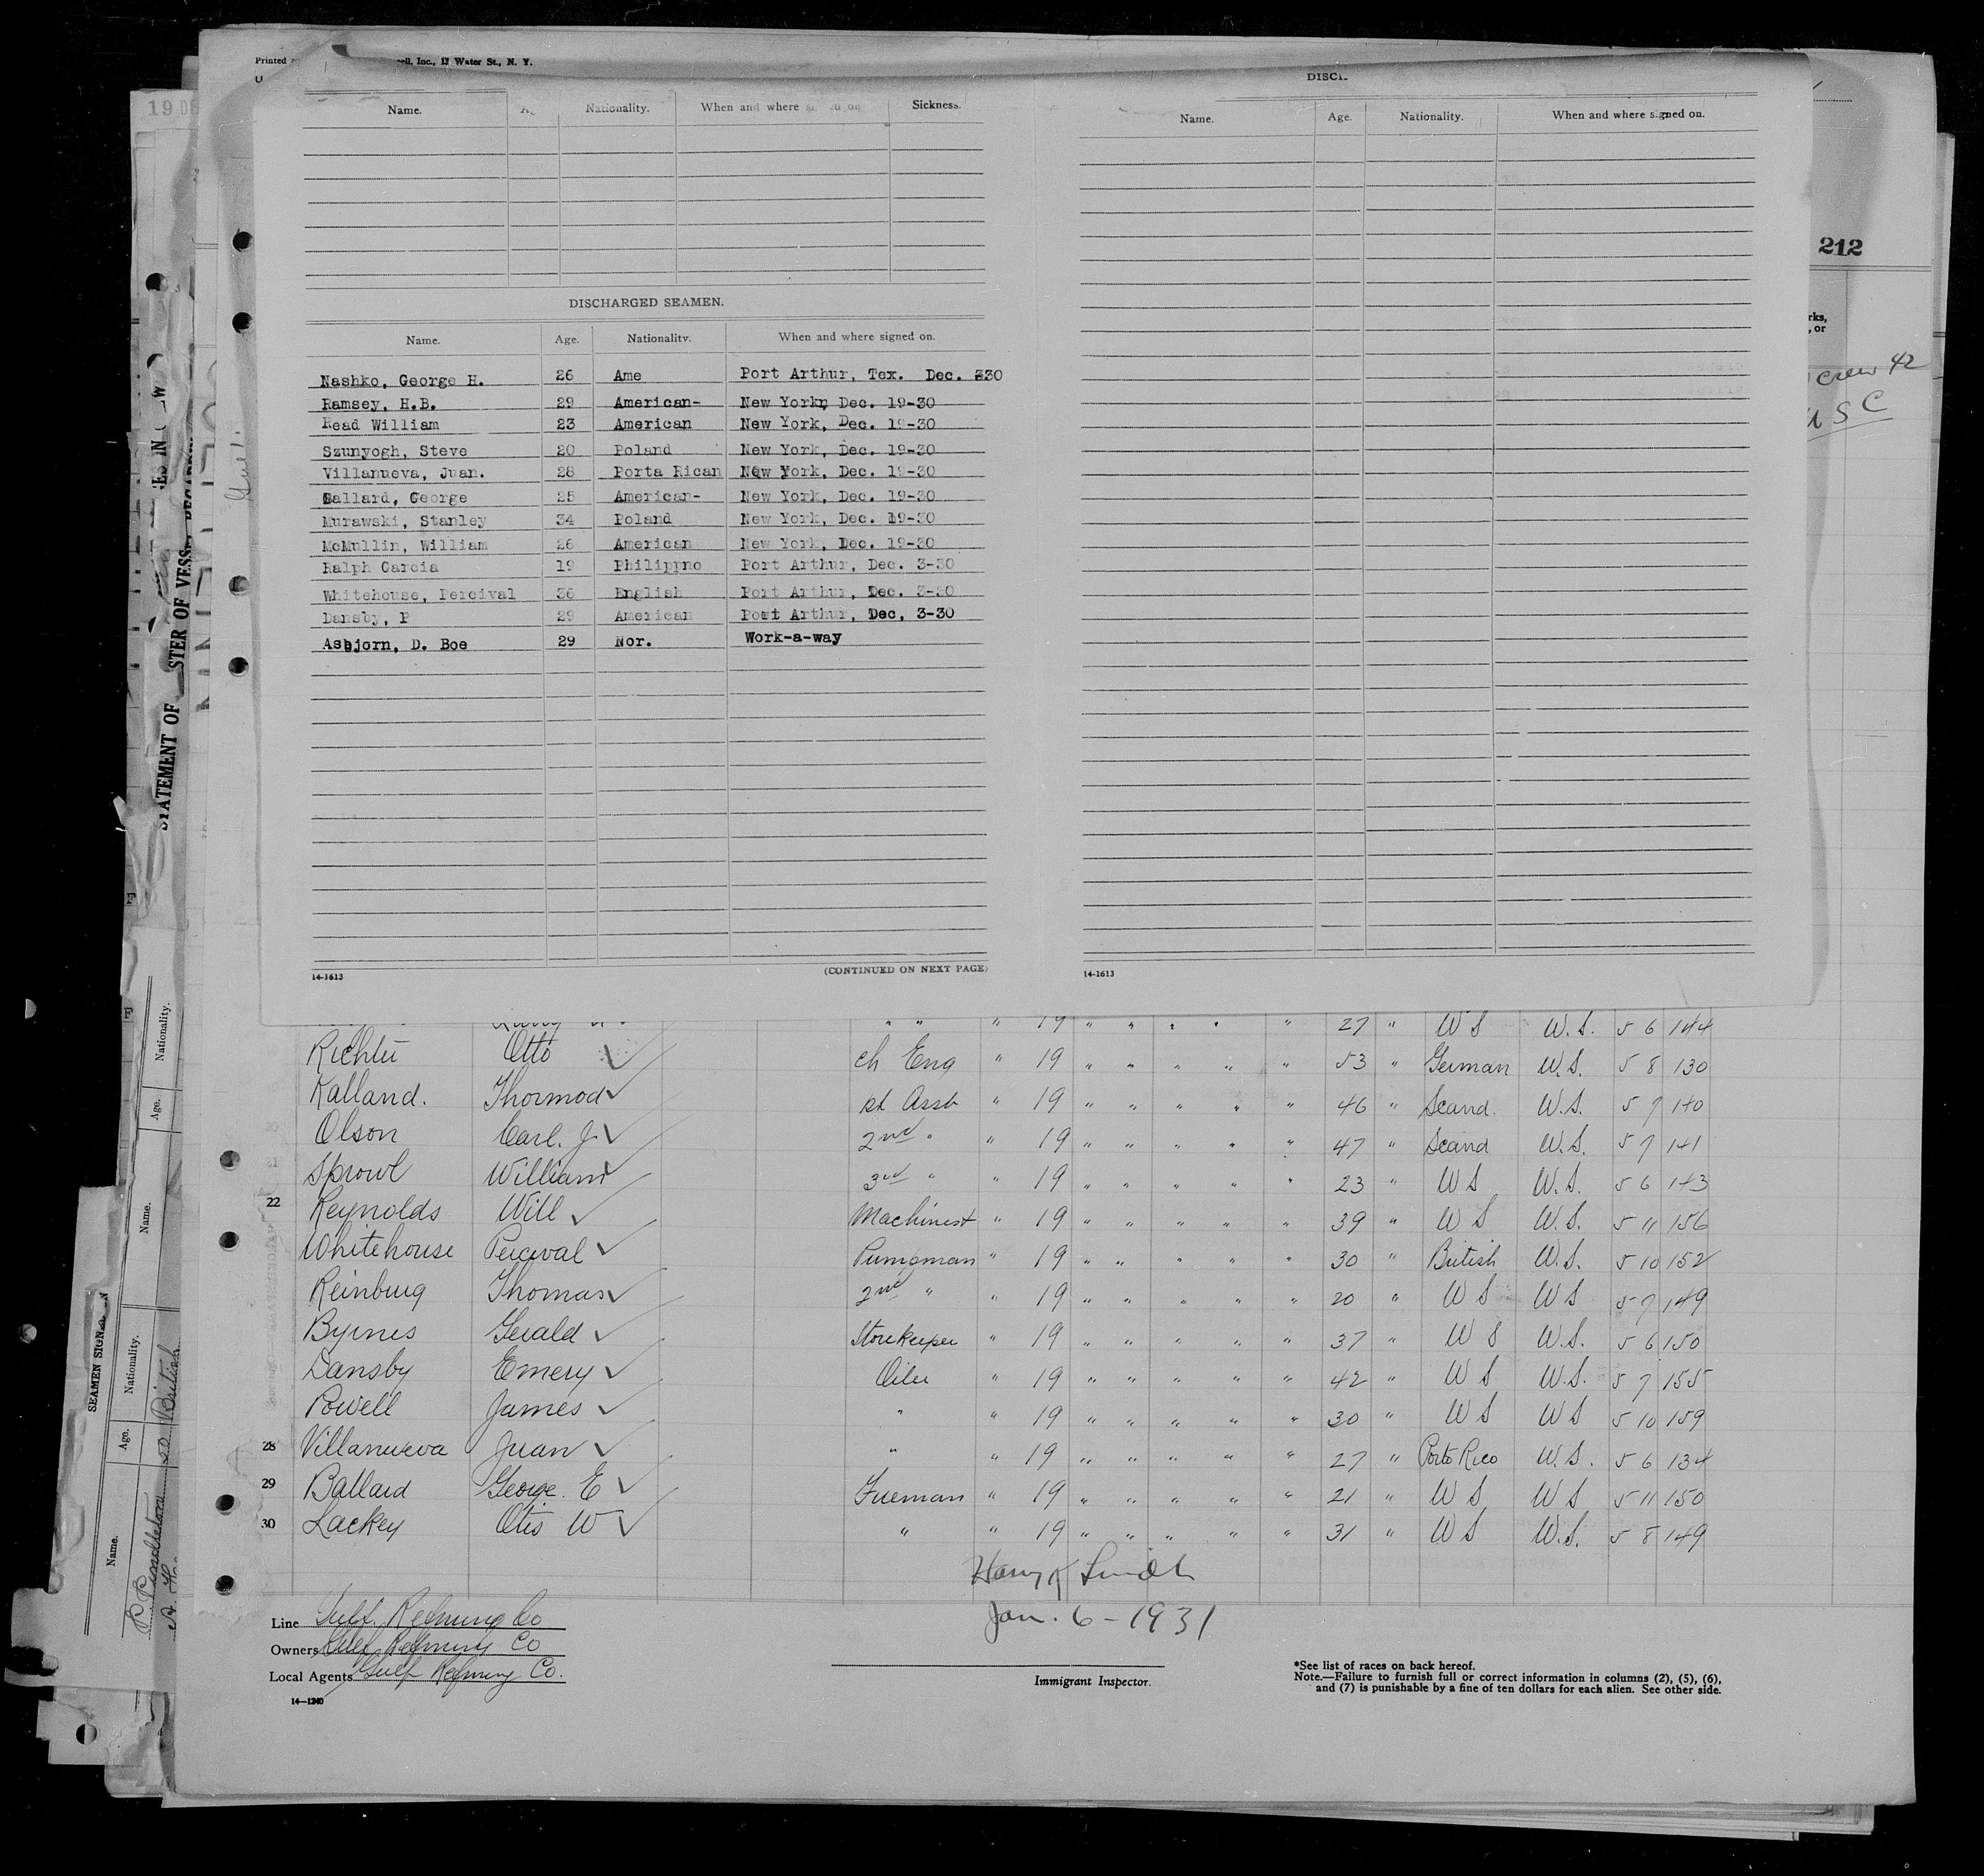 Printed
ell, Inc., 17 Water St., N. Y.
Name.
Nationality.
When and where
Sickness.
DISCHARGED SEAMEN.
Name. Age. Nationality. When and where signed on.
Nashko, George H. 26 Ame Port Arthur, Tex. Dec. 330
Ramsey, H.B. 29 American- New Yorkn Dec. 19-30
Read William 23 American New York, Dec. 19-30
Szunyogh, Steve 20 Poland New York, Dec. 19-30
Villanueva, Juan. 28 Porta Rican New York, Dec. 19-30
Ballard, George 25 American- New York, Dec. 19-30
Murawski, Stanley 34 Poland New York, Dec. 19-30
McMullin, William 26 American New York, Dec. 19-30
Ralph Garcia 19 Philippno Port Arthur, Dec. 3-30
Whitehouse, Percival 36 English Port Arthur, Dec. 3-30
Dansby, P 29 American Port Arthur, Dec, 3-30
Asbjorn, D. Boe 29 Nor. Work-a-way
14-1613 (CONTINUED ON NEXT PAGE)
DISCH
Name. Age. Nationality. When and where signed on.
14-1613
212
rks,
, or
crew 42
U S C
" " " 19 " " " " " 27 " W S W.S. 5 6 144
Richter Otto ch Eng " 19 " " " " " 53 " German W.S. 5 8 130
Kalland. Thormod 1st Asst " 19 " " " " " 46 " Scand. W.S. 5 7 140
Olson Carl. J. 2nd " " 19 " " " " " 47 " Scand W.S. 5 7 141
Sprowl William 3rd " " 19 " " " " " 23 " W S W.S. 5 6 143
22 Reynolds Will Machinist " 19 " " " " " 39 " W S W.S. 5 11 156
Whitehouse Percival Pumpman " 19 " " " " " 30 " British W.S. 5 10 152
Reinburg Thomas 2nd " " 19 " " " " " 20 " W S W S 5 7 149
Byrnes Gerald Storekeeper " 19 " " " " " 37 " W S W.S. 5 6 150
Dansby Emery Oiler " 19 " " " " " 42 " W S W.S. 5 7 155
Powell James " " 19 " " " " " 30 " W S W S 5 10 159
28 Villanueva Juan " " 19 " " " " " 27 " Porto Rico W.S. 5 6 134
29 Ballard George. E Fireman " 19 " " " " " 21 " W S W S 5 11 150
30 Lackey Otis W " " 19 " " " " " 31 " W S W.S. 5 8 149
Harry K Smith
Jan. 6-1931
Line Gulf. Refining Co
Owners Gulf Refining Co
Local Agents Gulf Refining Co.
14—1240
Immigrant Inspector.
*See list of races on back hereof.
Note.—Failure to furnish full or correct information in columns (2), (5), (6),
and (7) is punishable by a fine of ten dollars for each alien. See other side.
STATEMENT OF
STER OF VESS
SEAMEN SIGN
Name. Age. Nationality.
Name. Age. Nationality.
Pendleton 20 British